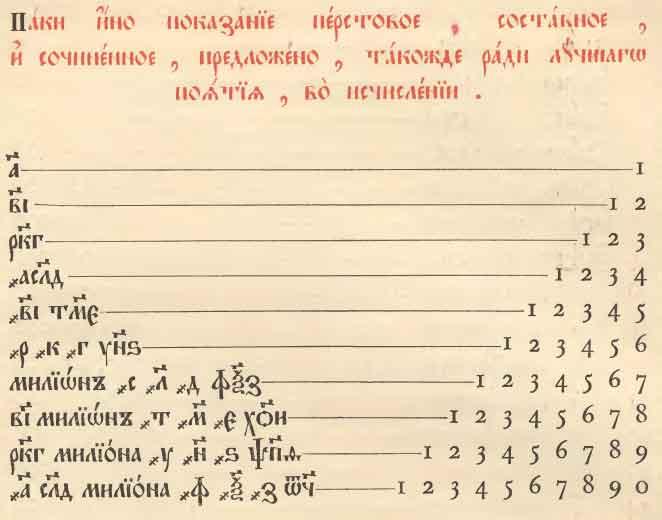 Па́ки и҆́но показа́нїе пе́рстовое , соста́вное ,
и҆ сочине́нное , предложе́но , та́кожде ра́ди лꙋ́чшагѡ
поѧ́тїѧ , во̀ исчисле́нїи .
а҃ 1
в҃і 1 2
рк҃г 1 2 3
҂асл҃д 1 2 3 4
҂в҃і тм҃е 1 2 3 4 5
҂р ҂к ҂г ун҃ѕ 1 2 3 4 5 6
милїѡ́нъ ҂с ҂л҃ ҂д фѯ҃з 1 2 3 4 5 6 7
в҃і милїѡ́нъ ҂т ҂м҃ ҂е хо҃и 1 2 3 4 5 6 7 8
рк҃г милїо́на ҂у ҂н҃ ҂ѕ ѱп҃ѳ 1 2 3 4 5 6 7 8 9
҂а҃ сл҃д милїо́на ҂ф ҂ѯ҃ ҂з ѿч҃ 1 2 3 4 5 6 7 8 9 0